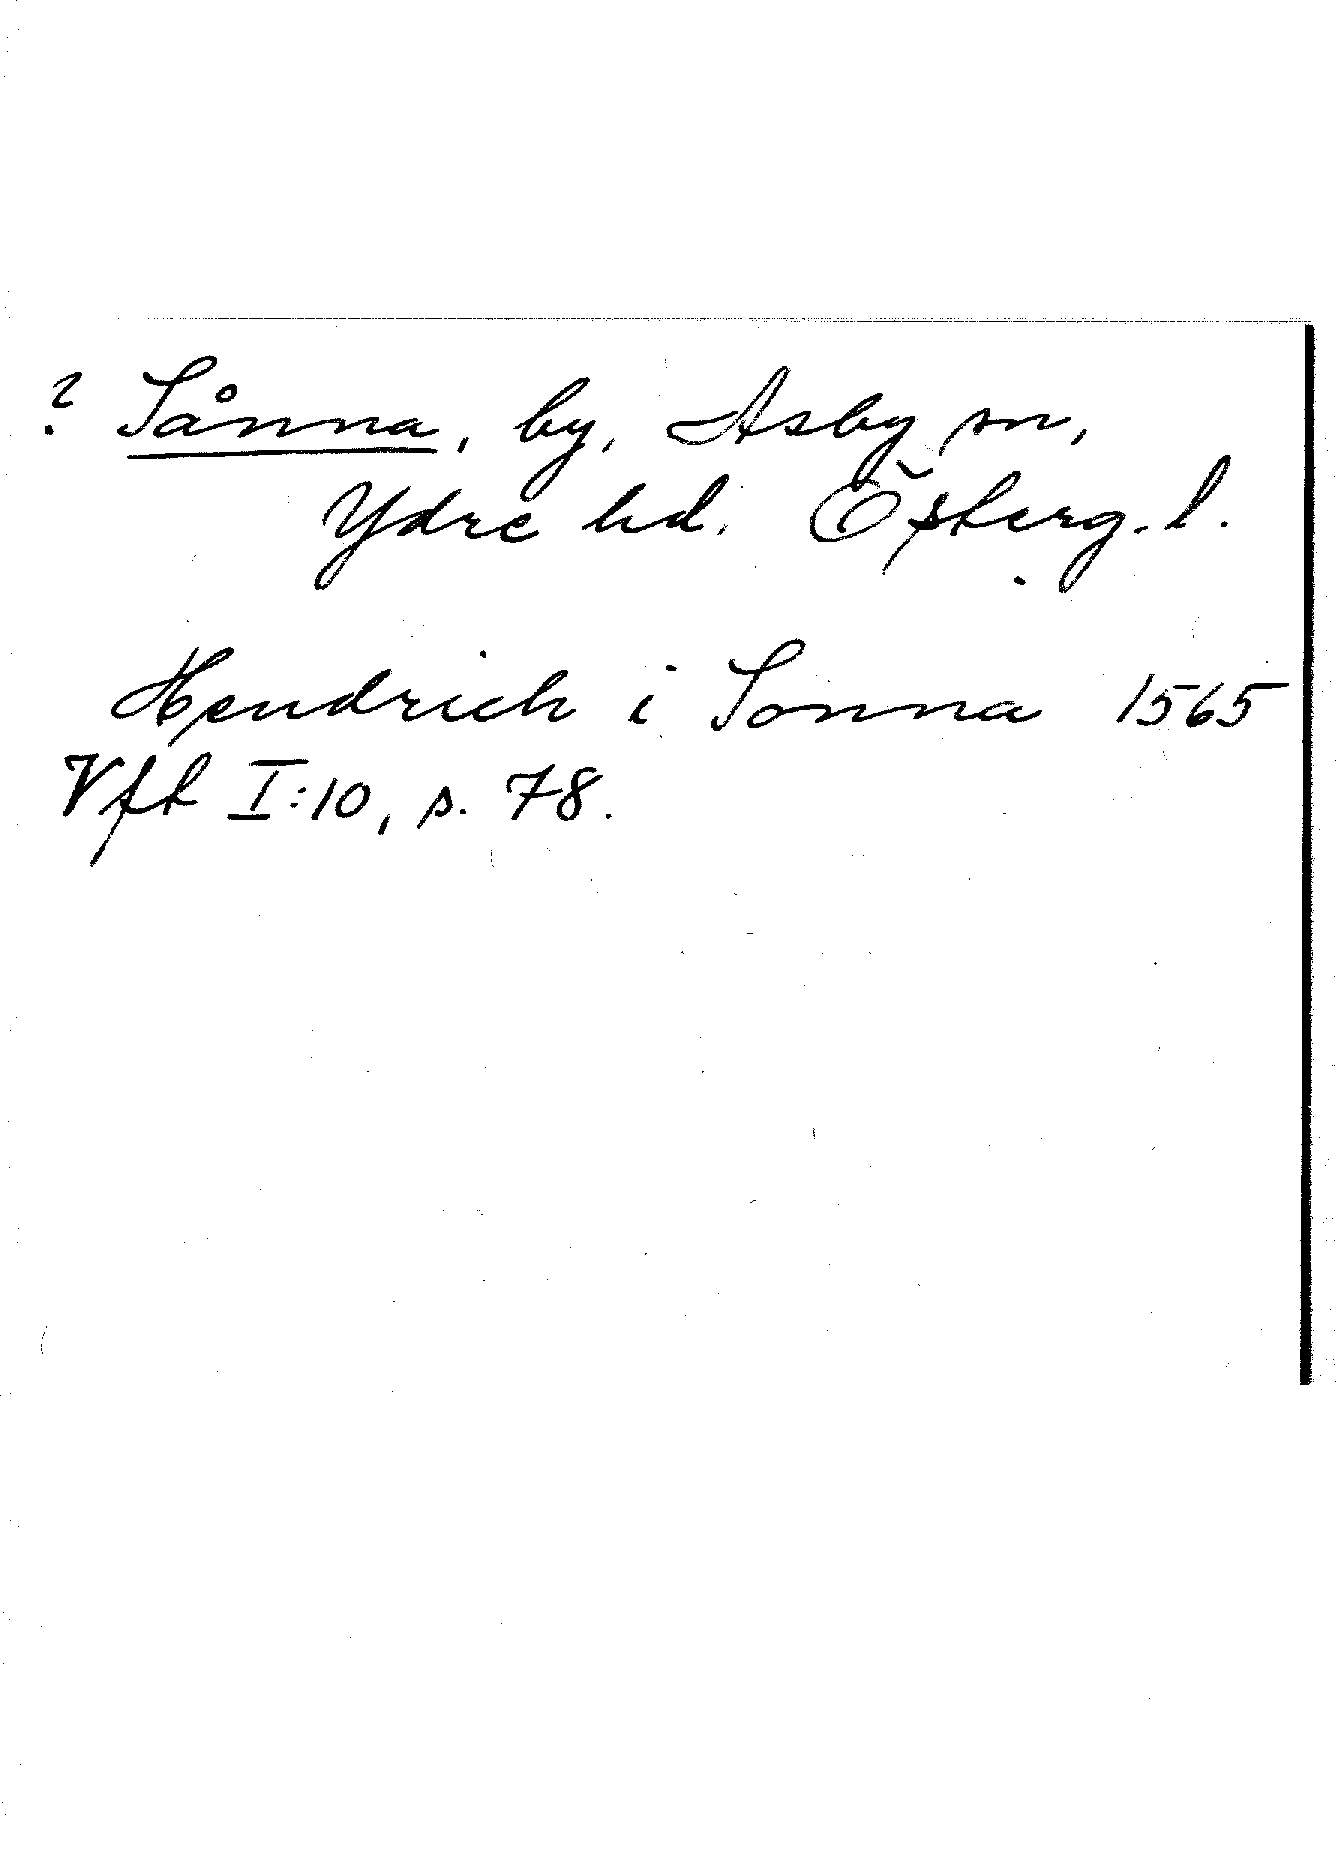 ? Sånna, by, Asby sn,
Ydre hd. Österg. l.
Hendrich i Sonna 1565
Vft I:10, s. 78.